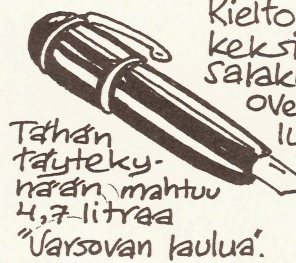 Kielto
keksi
salaki
ove
Tähän
täyteky-
nään mahtuu
4,7 litraa
"Varsovan laulua".